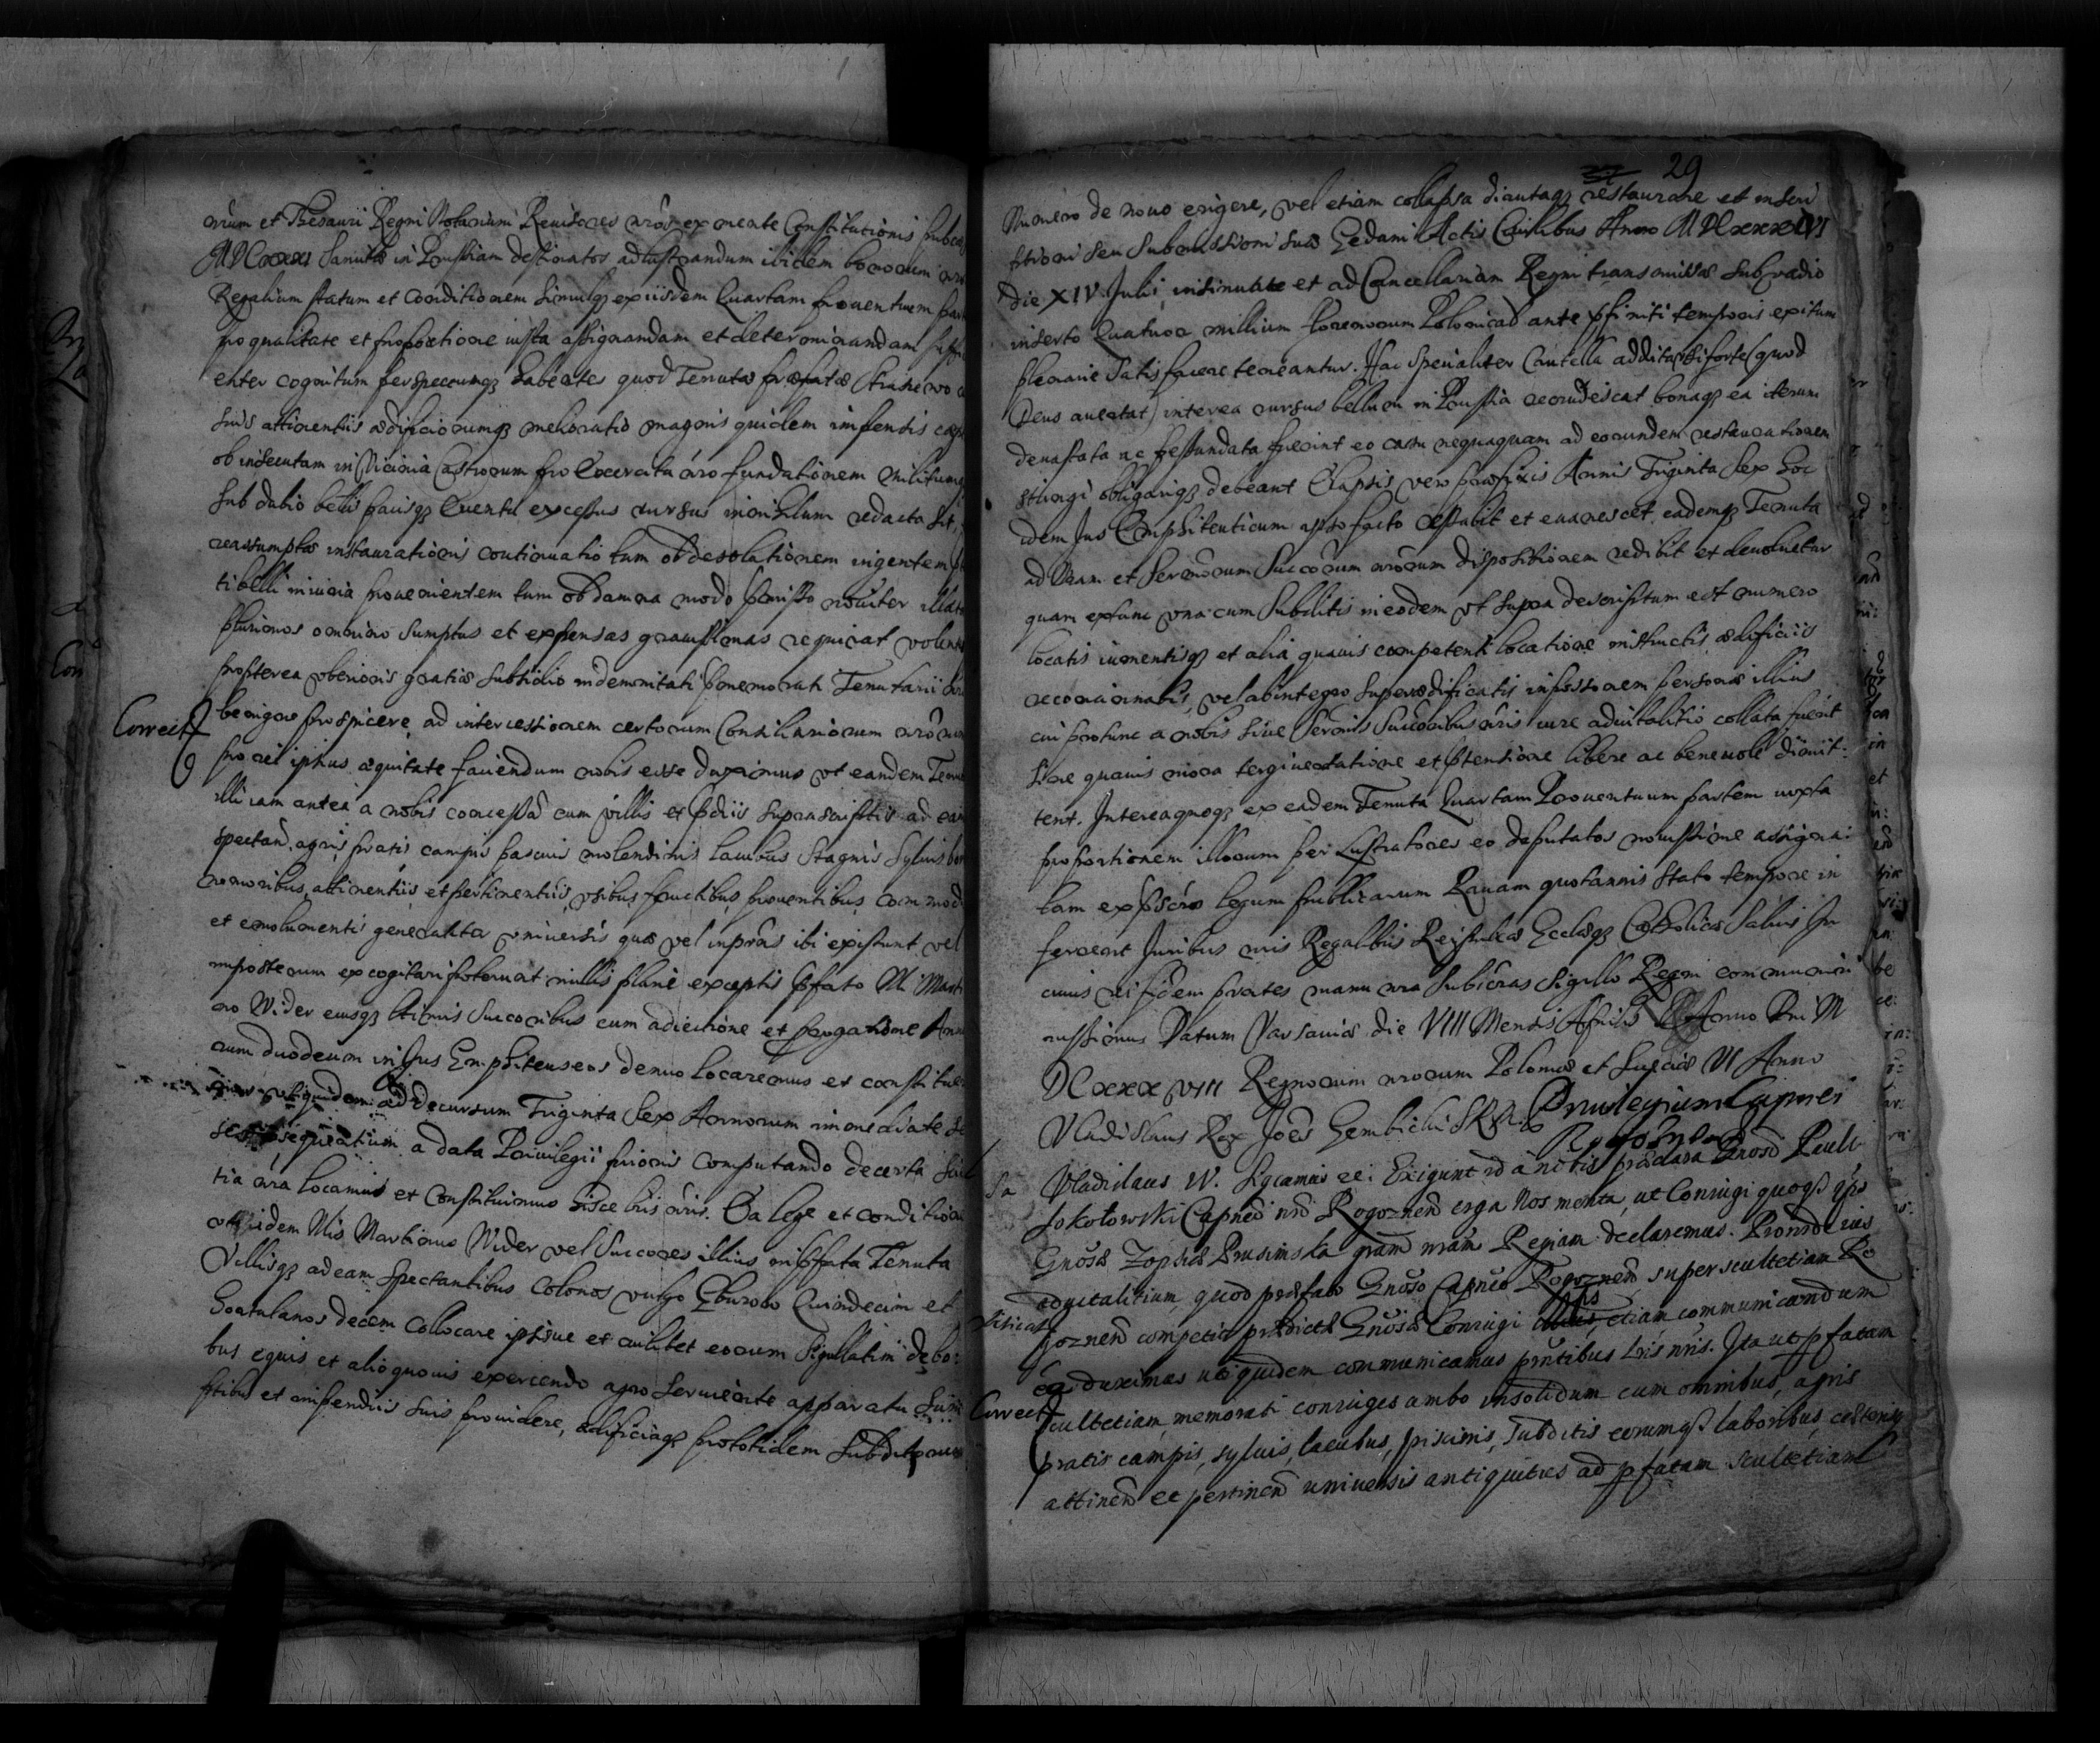 rum et Thesauri Regni Notarium Reuisores nros ex mente Constitutionis
MDCxxxi Sancitae in Prussiam destinatos ad lustrandum ibidem bonorum nror
Regalium statum et conditionem simulqz ex iisdem Quartam prouentuum
pro qualitate et proportione iusta assignandam et determinandam
enter cognitum perspectumqz habentes quod Tenutae praefatae
suis attinentiis aedificiorumqz melioratio magnis quidem impensis
ob insecutam in Vicinia Castrorum pro Exercitu nro fundationem militumqz
sub dubio belli pacisqz Euentu excessus rursus in nihilum redacta sit,
reassumptae instaurationis continuatio tum ob desolationem ingentem
ti belli iniuria prouenientem tum ob damna modo praemisso nouiter illata
plurimos omnino sumptus et expensas grauissimas requirat volentes
propterea vberioris gratiae subsidio indemnitati praememorati Tenutarii
Correct benigne prospicere, ad intercessionem certorum Consiliariorum nrorum
pro rei ipsius aequitate faciendum nobis esse duximus vt eandem Tenutam
illi iam antea a nobis concessam cum villis et praediis suprascriptis ad eam
spectan. agris pratis campis pascuis molendinis lacubus stagnis syluis
nemoribus, attinentiis, et pertinentiis, vsibus, fructibus, prouentibus, commodis
et emolumentis generaliter vniuersis quae vel in praesens ibi existunt vel
imposterum excogitari poterunt nullis plane exceptis praefato M. Marti
no Wider eiusqz ltimis Succoribus cum adiectione et prorogatione Anno
rum duodecim in Jus Emphiteuseos denuo locaremus et constitue
utiquidem ad decursum Triginta sex Annorum immediate
sequentium a data Priuilegii prioris computando de certa
tia nra locamus et constituimus hisce lris nris. Ea lege et conditione
vt idem Mis Martinus Wider vel Succores illius in praefata Tenuta
Villisqz ad eam spectantibus Colonos vulgo Gburow Quindecim et
Hortulanos decem collocare ipsisue et cuilibet eorum sigillatim de bo:
bus equis et alio quouis exercendo agro seruiente apparatu
ptibus et impendiis suis prouidere, aedificiaqz pro totidem subditorum
29
Numero de nouo erigere, vel etiam collapsa dirutaqz restaurare et inscri
ptioni seu submissioni suae Gedani Actis Ciuilibus Anno MDCxxxVI
die XIV Julii insinuatae et ad Cancellariam Regni transmissae sub vadio
inserto Quatuor millium florenorum Polonical ante praefiniti temporis exitum
plenarie satisfacere teneantur. Hac specialiter Cautella addita si forte (quod
Deus auertat) interea rursus bellum in Prussia recrudescat bonaqz ea iterum
deuastata ac pessundata fuerint eo casu nequaquam ad eorundem restaurationem
stringi obligariqz debeant Elapsis vero praefixis Annis Triginta Sex hoc
idem Jus Emphiteuticum ipso facto cessabit et euanescet, eademqz Tenuta
ad Nram et Sermorum Succorum nrorum dispositionem redibit et deuoluetur
quam extunc vna cum subditis in eodem vt supra descriptum est numero
locatis iumentisqz et alia quauis competenti locatione instructis, aedificiis
reconcinnatis, vel ab integro superaedificatis in possessionem personae illius
cui pro tunc a nobis siue Sermis Succoribus nris iure aduitalitio collata fuerit
sine quauis mora tergiuersatione et praetensione libere ac beneuole dimit:
tent. Interea quoqz ex eadem Tenuta Quartam Prouentuum partem iuxta
proportionem illorum per Lustratores eo deputatos nouissime assigna:
tam ex praescro legum publicarum Rauam quotannis stato tempore in
ferent Juribus nris Regalibus Reipublicae Ecclaeqz Catholicae saluis In
cuius rei fidem prntes manu nra subscras sigillo Regni communiri
iussimus Datum Varsauiae die VIII Mensis Aprilis Anno Dni M
DCxxxVIII Regnorum nrorum Poloniae et Sueciae VI Anno
Vladislaus Rex Joes Gembicki SRR.
Priuilegium Capnei
Rogosnen
Vladislaus IV. Sigcamus etc: Exigunt id a nobis praeclara Gnosi Pauli
Sokołowski Capnei nri Rogoznen erga Nos merita, ut Coniugi quoqz ipsius
Gnosae Zophiae Prusimska gram nram Regiam declaremus. Proinde ius
aduitalitium, quod praefato Gnoso Capneo Rogoznen, super scultetiam Ro
goznen competit praedictae Gnosae Coniugi ipsius etiam communicandum
ee. duximus uti quidem communicamus prntibus lris nris. Ita ut pfatam
Correct scultetiam, memorati coniuges ambo insolidum cum omnibus, agris
pratis campis, syluis, lacubus, piscinis, subditis eorumqz laboribus, caeterisqz
attinen et pertinen uniuersis antiquitus ad pfatam scultetiam